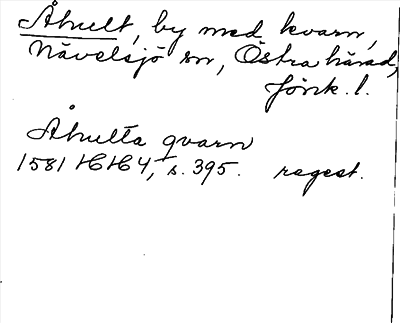 Åhult, by med kvarn,
Nävelsjö sn, Östra härad,
Jönk. l.
Åhulta qvarn
1581 HH 4, s. 395. regest.